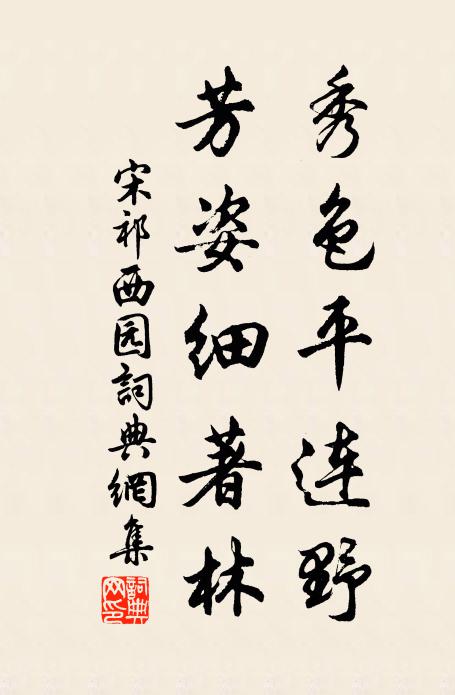 秀色平连野
芳姿细著林
宋祁西园詞典網集
詞典网印